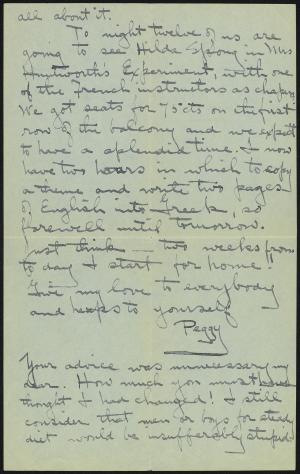 all about it.
To night twelve of us are
going to see Hilda Spong in Mrs
Hulworth's Experiment, with one
of the French instructors as chapron.
We got seats for 75 cts on the first
row of the balcony and we expect
to have a splendid time. I now
have two hours in which to copy
a theme and write two pages
of English into Greek, so
farewell until tomorrow.
Just think — two weeks from
to day I start for home.
Give my love to everybody
and heaps to yourself
Peggy
Your advice was unnecessary my
dear. How much you must have
thought I had changed! I still
consider that men or boys for steady
diet would be insufferably stupid.